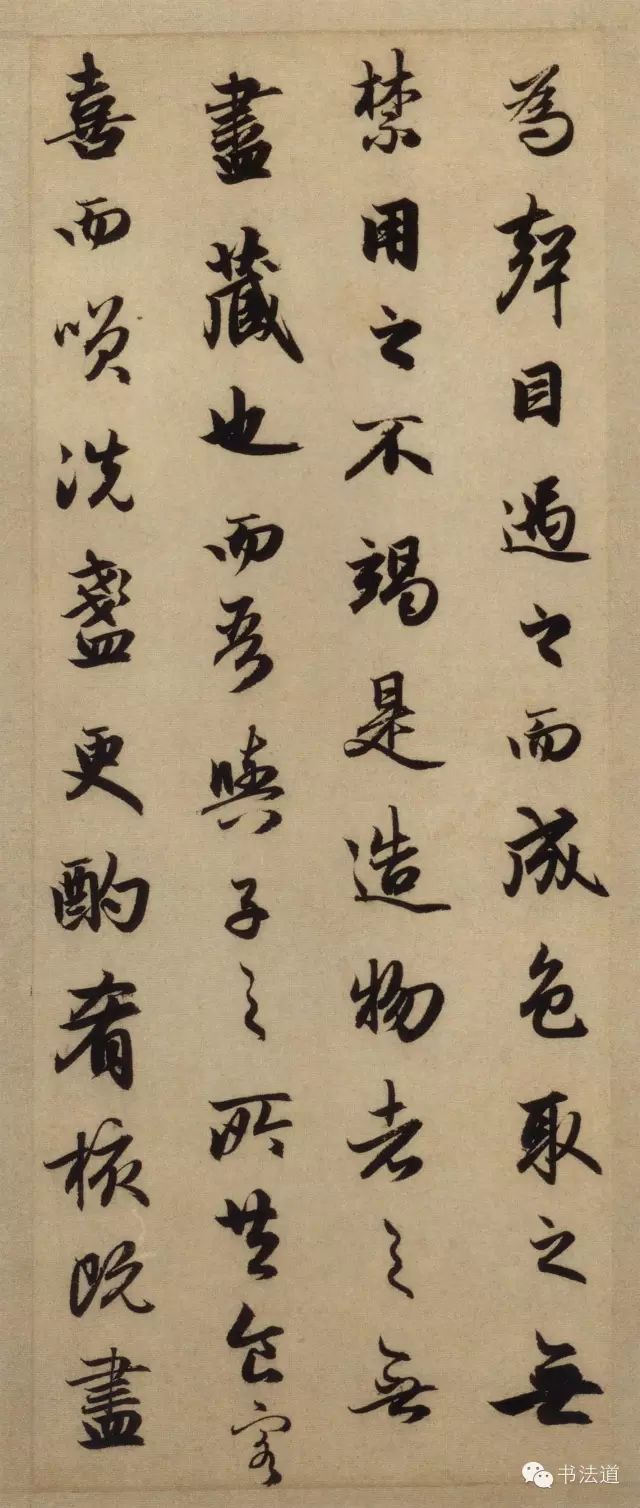 為聲目遇之而成色取之無
禁用之不竭是造物者之無
盡藏也而吾與子之所共食客
喜而笑洗盞更酌肴核既盡
书法道